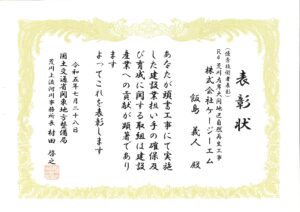 表彰状
(優秀技術者表彰)
株式会社ケージーエム
飯島 義人 殿
あなたが頭書工事にて実施
した建設業担い手の確保及
び育成に関する取組は建設
産業への貢献が顕著であり
ます
よってこれを表彰します
令和五年七月二十八日
国土交通省関東地方整備局
荒川上流河川事務所長 村田 啓之